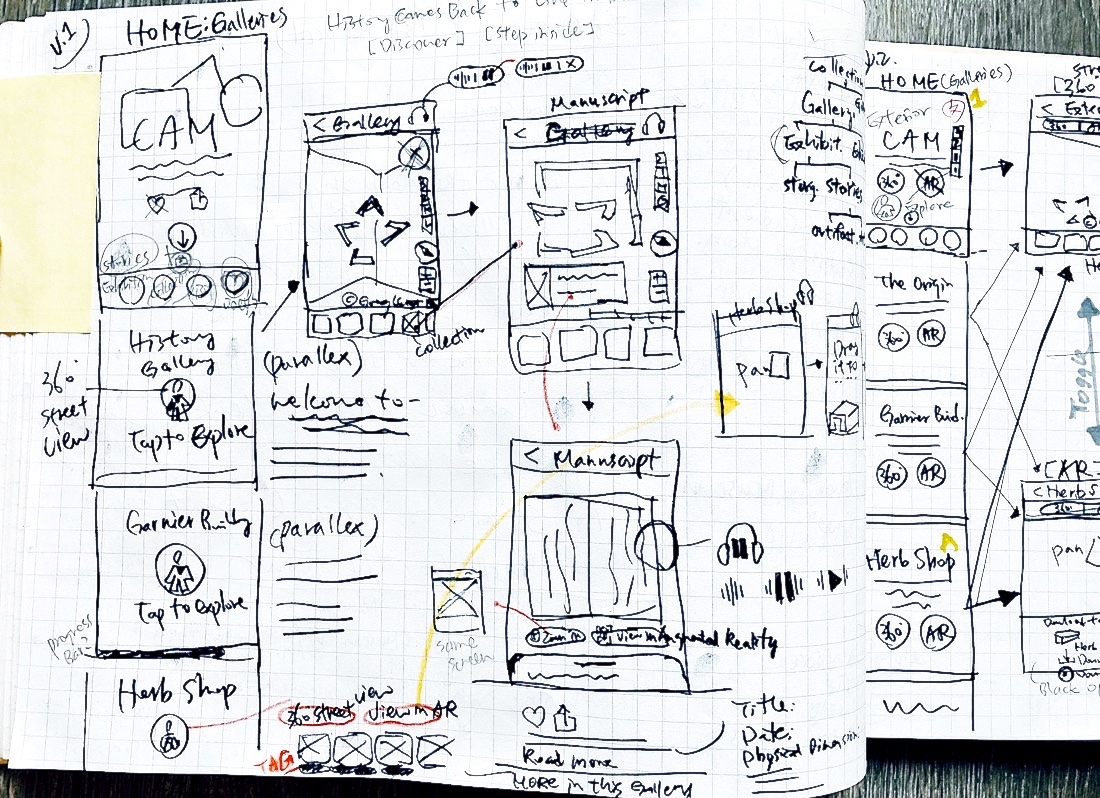 V.1
HOME: Galleries
History Comes Back to
[Discover] [Step inside]
CAM
stories
History
Gallery
Tap to Explore
360°
street
view
Garnier Building
Tap to explore
progress
Bar?
Herb Shop
< Gallery
collection
(parallex)
Welcome to-
(parallex)
Manuscript
< Gallery
< Mannscript
Zoom in
View in Augmented Reality
same
screen
360 street view
View in AR
TAG
Read more
MORE in this Gallery
Title:
Date:
Physical Dimension:
Herb Shop
pan
Drag
it to
collection
Gallery
Exhibit.
story. stories
artifact.
V.2.
HOME (Galleries)
1
Exterior
CAM
360°
AR
Explore
The Origin
360°
AR
Garnier Build.
360°
AR
Herb Shop
360°
AR
[360°
< Exter
Toggle
[AR]
< Herbs
360°
pan
Herb
Black